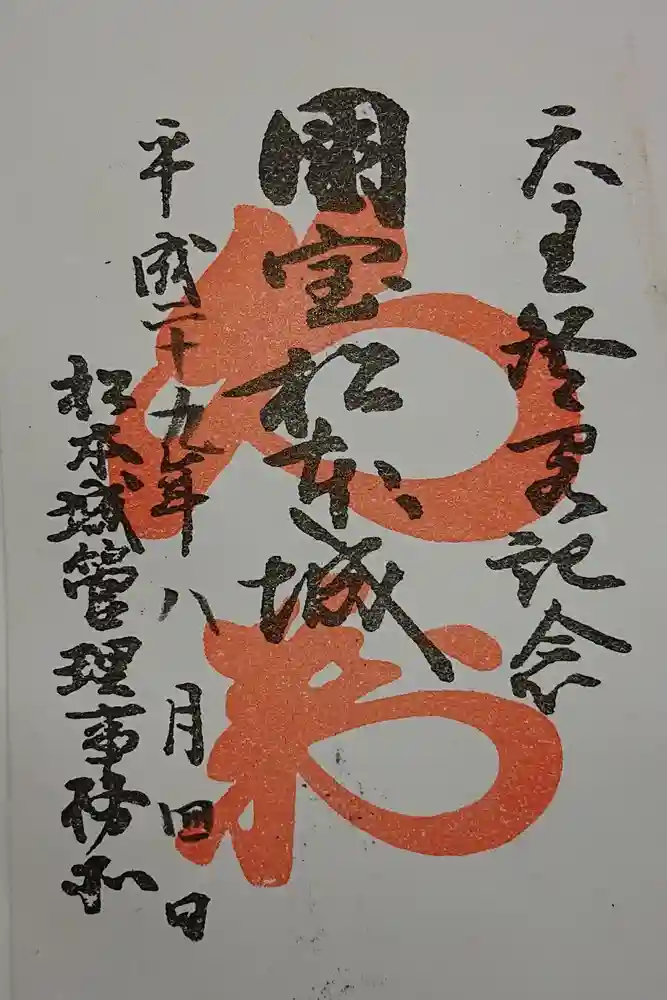 天主登閣記念
国宝松本城
平成二十九年八月四日
松本城管理事務所